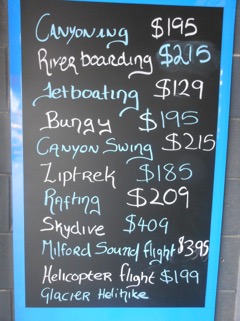 Canyoning $195
River boarding $215
Jetboating $129
Bungy $195
Canyon Swing $215
Ziptrek $185
Rafting $209
Skydive $409
Milford Sound flight $395
Helicopter flight $199
Glacier Helihike